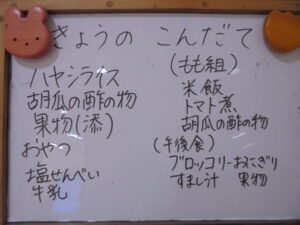 きょうの こんだて
ハヤシライス
胡瓜の酢の物
果物(添)
おやつ
塩せんべい
牛乳
(もも組)
米飯
トマト煮
胡瓜の酢の物
(午後食)
ブロッコリーおにぎり
すまし汁 果物